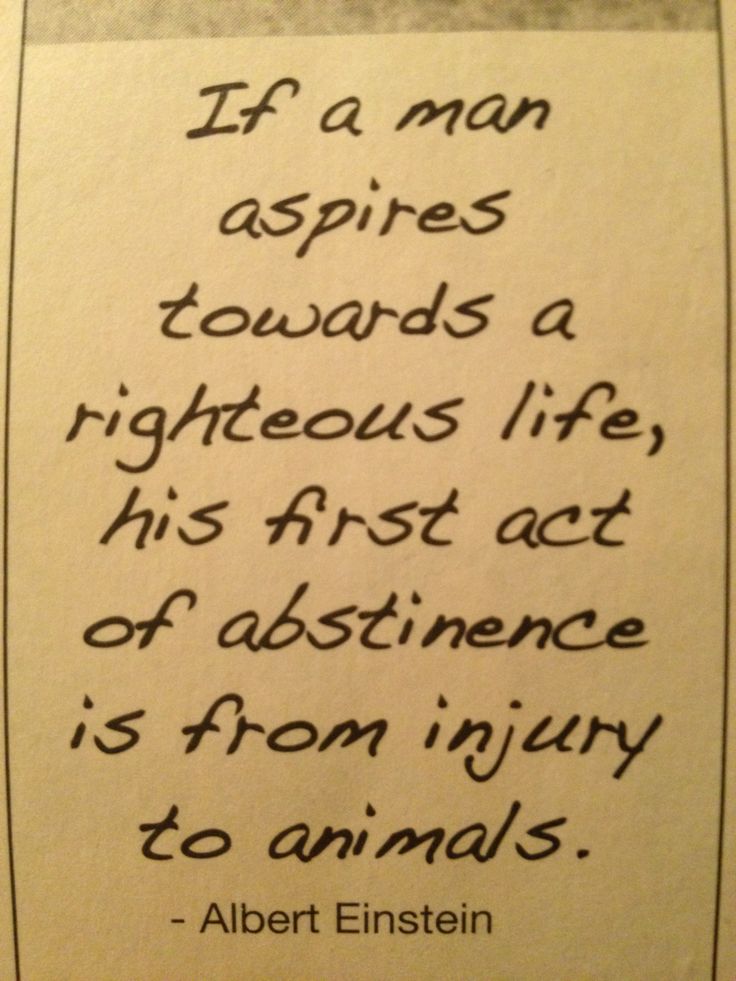 If a man
aspires
towards a
righteous life,
his first act
of abstinence
is from injury
to animals.
- Albert Einstein